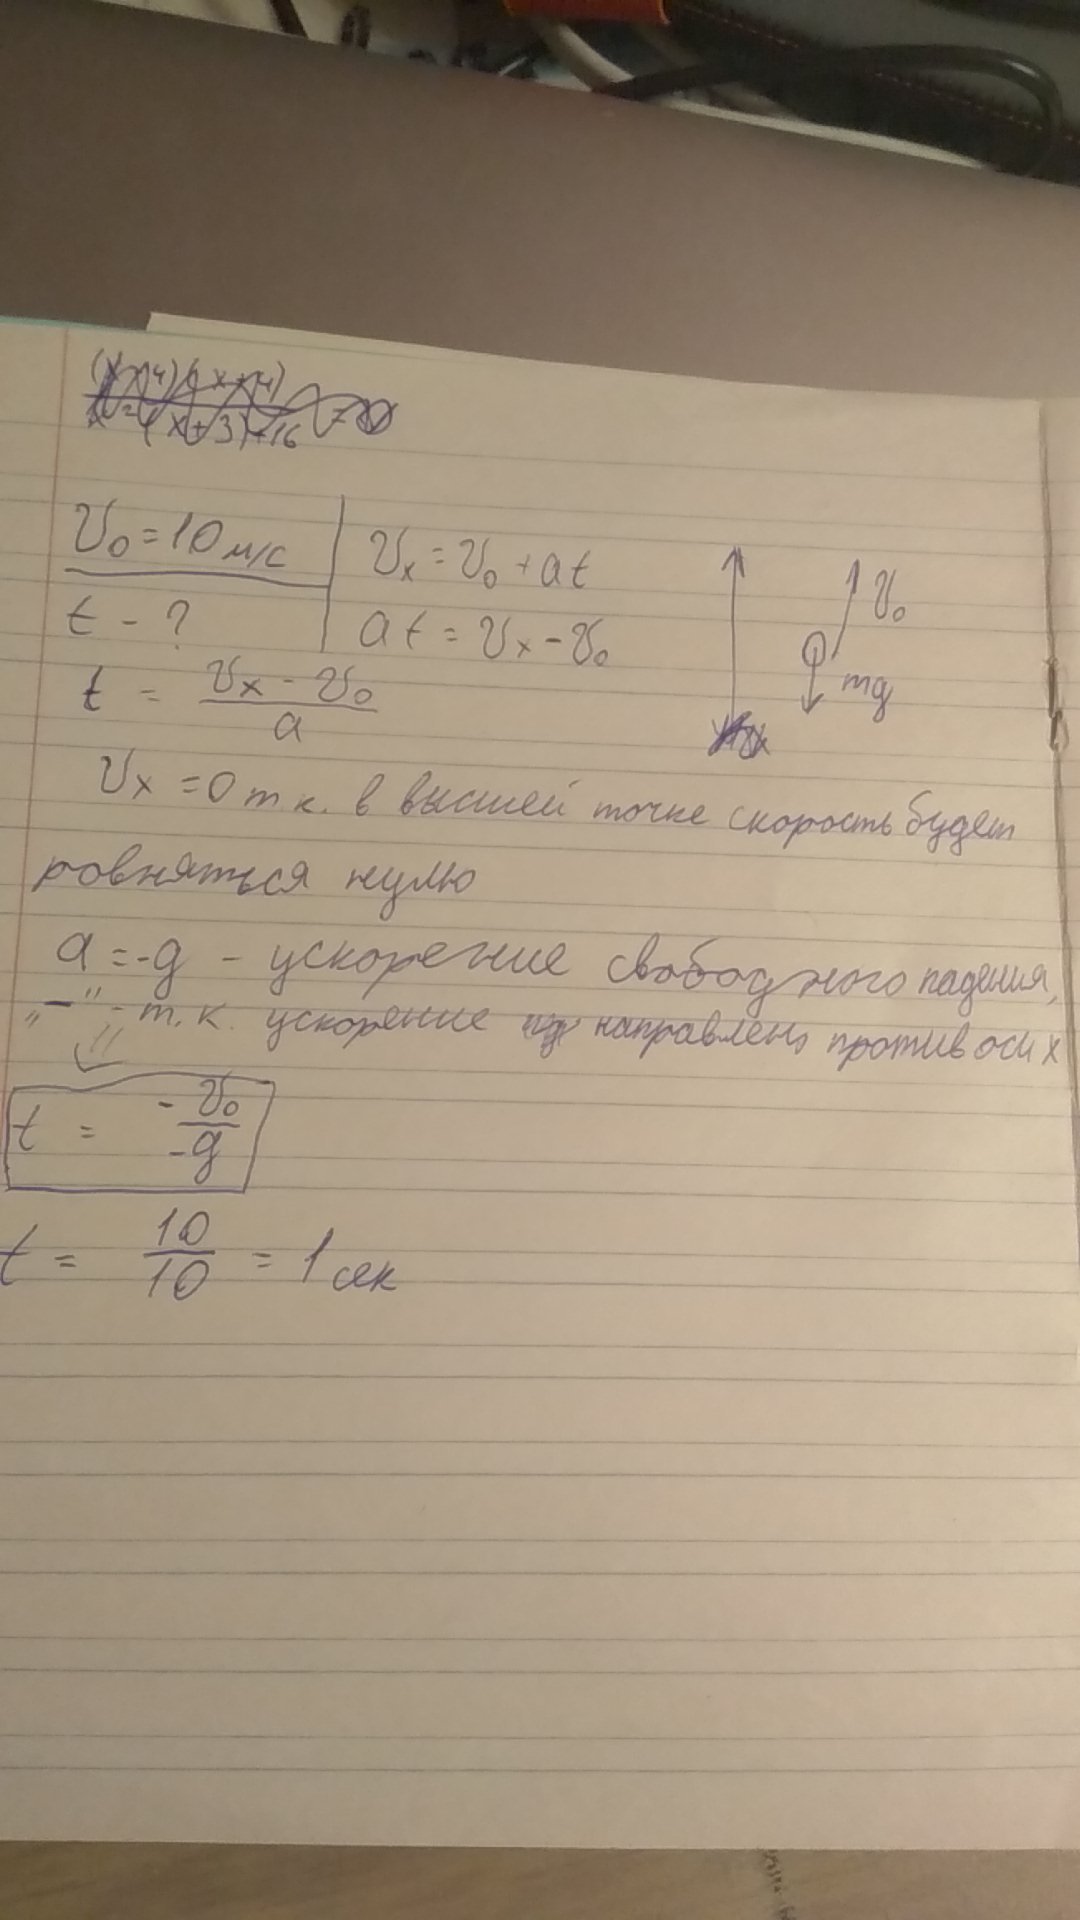 υ₀ = 10 м/с
t - ?
υₓ = υ₀ + at
at = υₓ - υ₀
t = (υₓ - υ₀)/a
υ₀
mg
υₓ = 0 т.к. в высшей точке скорость будет
ровняться нулю
a = -g - ускорение свободного падения,
„-" - т.к. ускорение направлено против оси x
t = -υ₀/-g
t = 10/10 = 1 сек